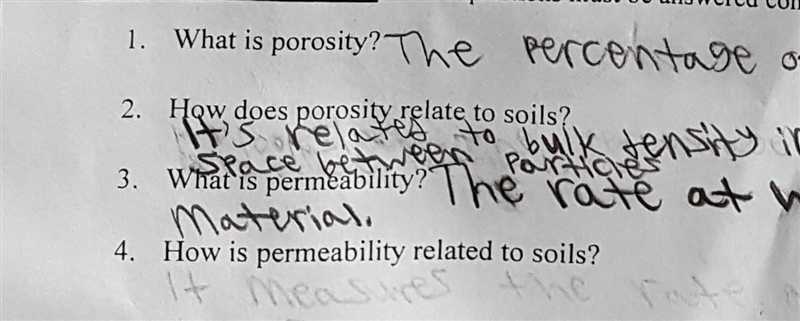 1. What is porosity? The percentage o
2. How does porosity relate to soils?
It's related to bulk density in
space between particles
3. What is permeability? The rate at w
material.
4. How is permeability related to soils?
It measures the rate